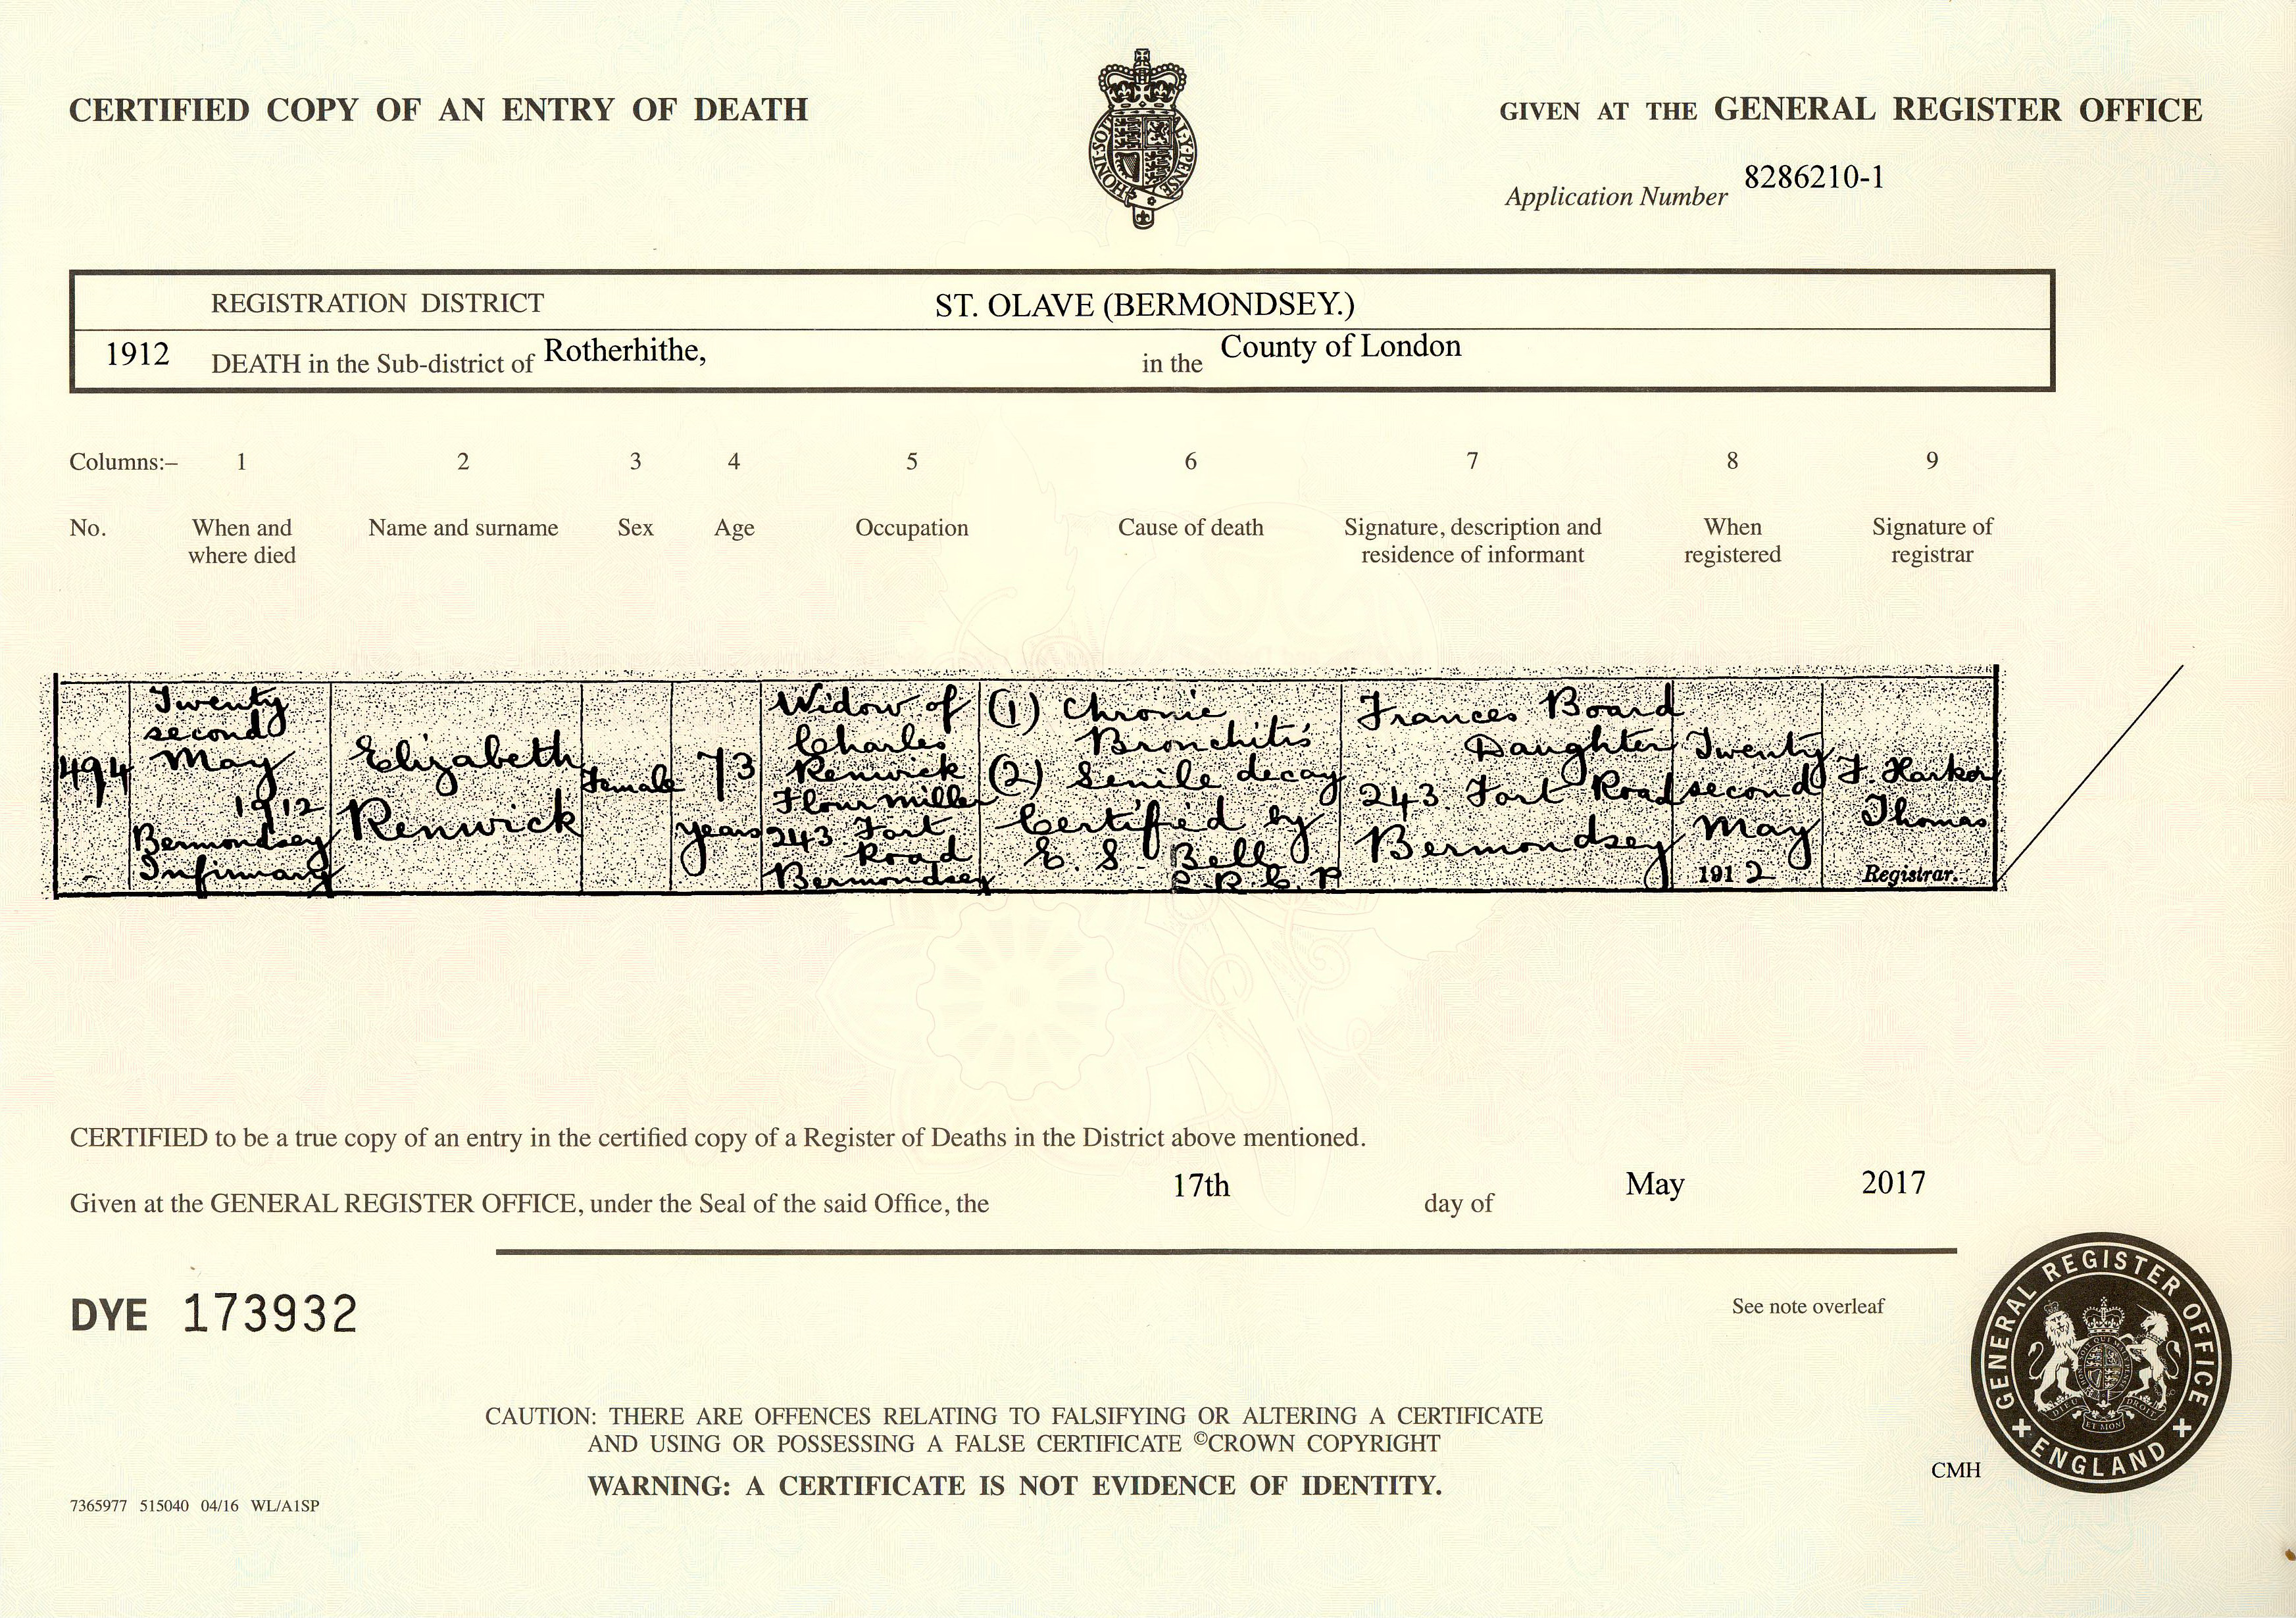 CERTIFIED COPY OF AN ENTRY OF DEATH
GIVEN AT THE GENERAL REGISTER OFFICE
Application Number 8286210-1
REGISTRATION DISTRICT ST. OLAVE (BERMONDSEY.)
1912 DEATH in the Sub-district of Rotherhithe, in the County of London
Columns:– 1 2 3 4 5 6 7 8 9
No. When and where died
Name and surname
Sex
Age
Occupation
Cause of death
Signature, description and
residence of informant
When
registered
Signature of
registrar
494
Twenty
second
May
1912
Bermondsey
Infirmary
Elizabeth
Renwick
Female
73
years
Widow of
Charles
Renwick
Flour miller
243 Fort
Road
Bermondsey
(1) Chronic
Bronchitis
(2) Senile decay
Certified by
E. S. Bell
L R C P
Frances Board
Daughter
243 Fort Road
Bermondsey
Twenty
second
May
1912
Thomas
Registrar.
CERTIFIED to be a true copy of an entry in the certified copy of a Register of Deaths in the District above mentioned.
Given at the GENERAL REGISTER OFFICE, under the Seal of the said Office, the 17th day of May 2017
DYE 173932
See note overleaf
GENERAL REGISTER OFFICE
ENGLAND
CAUTION: THERE ARE OFFENCES RELATING TO FALSIFYING OR ALTERING A CERTIFICATE
AND USING OR POSSESSING A FALSE CERTIFICATE ©CROWN COPYRIGHT
WARNING: A CERTIFICATE IS NOT EVIDENCE OF IDENTITY.
CMH
7365977 515040 04/16 WL/A1SP